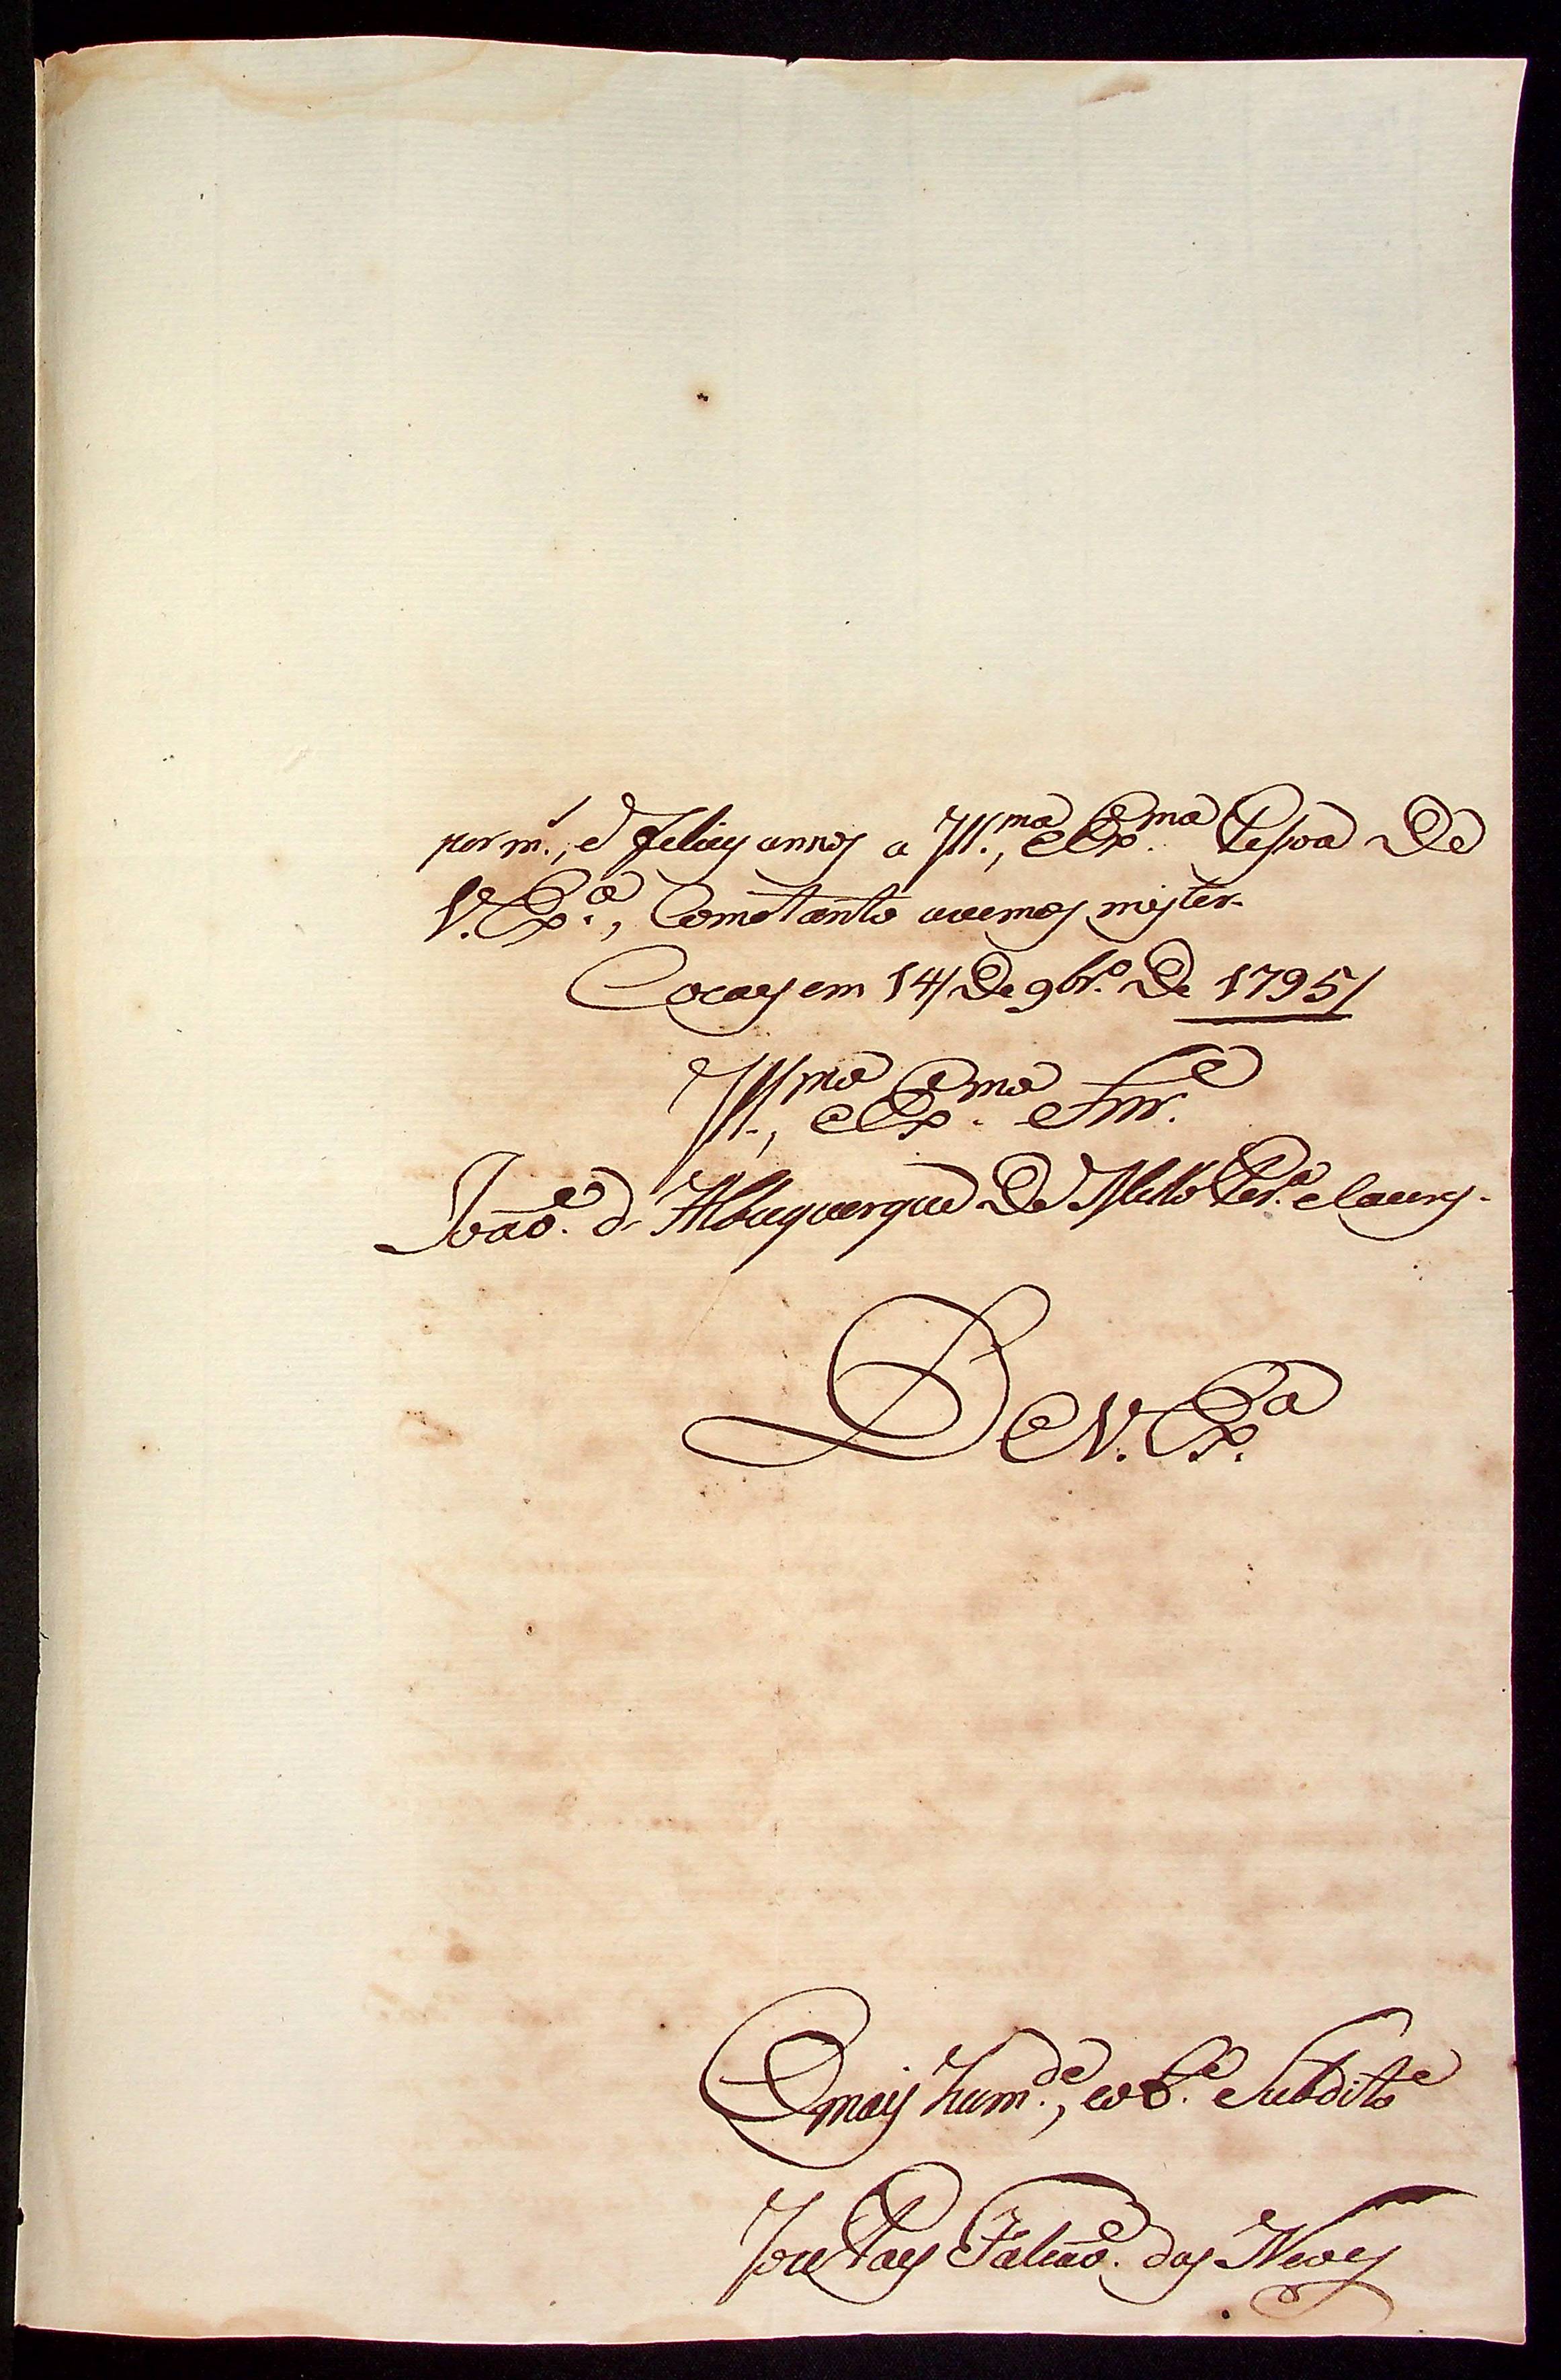 por m.^s, e felices annos a Ill.^ma, e Ex.^ma Pessoa De
V. Ex.^a, Como tanto avemos mister.
Cocaes em 14 De 9br.^o De 1795
Ill.^mo, e Ex.^mo Snr.^e
João. d' Albuquerque De Mello Per.^a e Caceres.
De V. Ex.^a
O mais hum.^de, e ob.^e Subdito
Joze Paes Falcão. das Neves